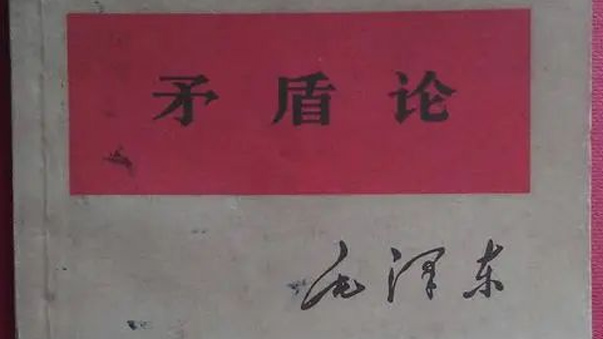 矛盾论
毛泽东